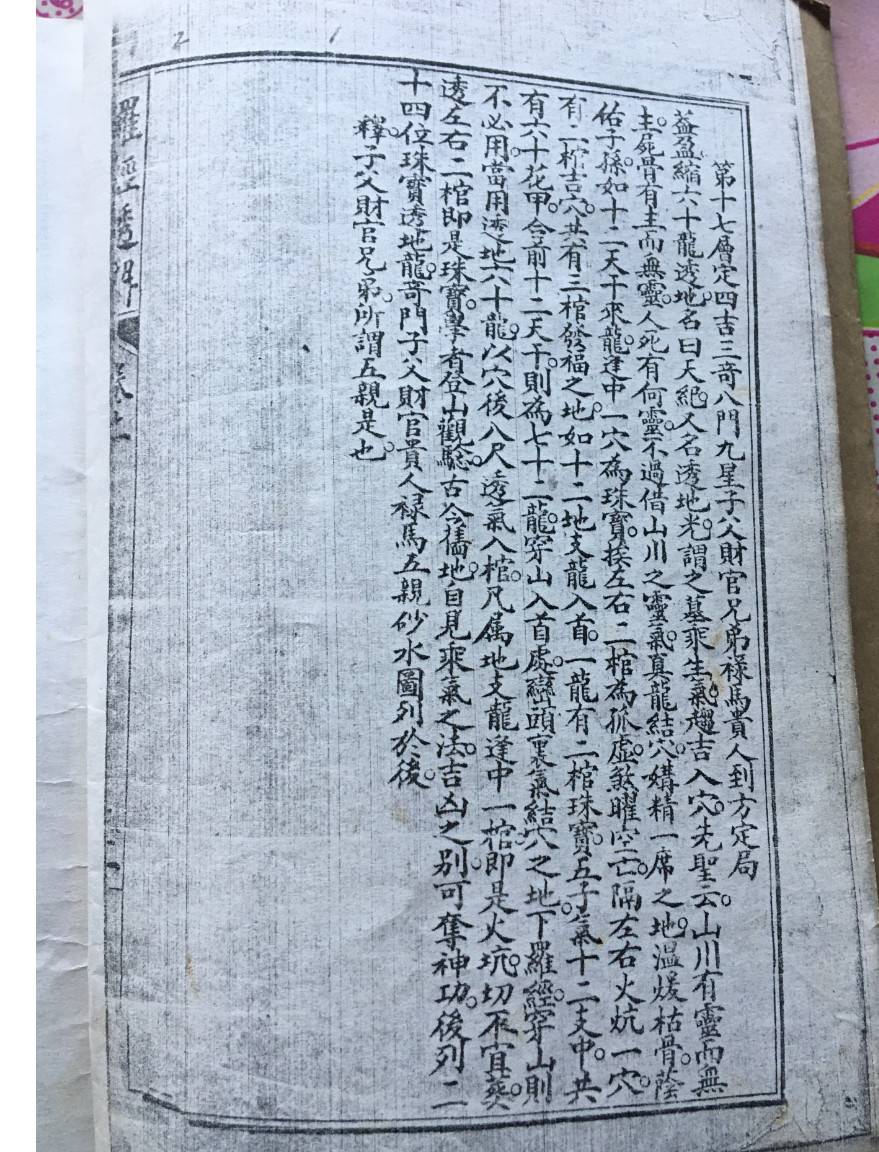 第十七層定四吉三奇八門九星子父財官兄弟祿馬貴人到方定局
益盈縮六十龍透地名曰天絕人名透地光謂之墓乘生氣趨吉入穴先聖云山川有靈而無
主屍骨有主而無靈人死有何靈不過借山川之靈氣真龍結穴媾精一席之地溫煖枯骨蔭
佑子孫如十二天干來龍逢中一穴為珠寶挨左右二棺為孤虛煞曜空亡隔左右火炕一穴
有二棺吉穴共有三棺發福之地如十二地支龍入首一龍有二棺珠寶五子氣十二支中共
有六十花甲合前十二天干則為七十二龍穿山入首處巒頭裏氣結穴之地下羅經穿山則
不必用當用透地六十龍以穴後八尺透氣入棺凡属地支龍逢中一棺即是火坑切不宜葬
透左右二棺即是珠寶學者登山觀驗古今舊地自見乘氣之法吉凶之別可奪神功後列二
十四位珠寶透地龍奇門子父財官貴人祿馬五親砂水圖列於後
釋子父財官兄弟所謂五親是也
羅經透解
2